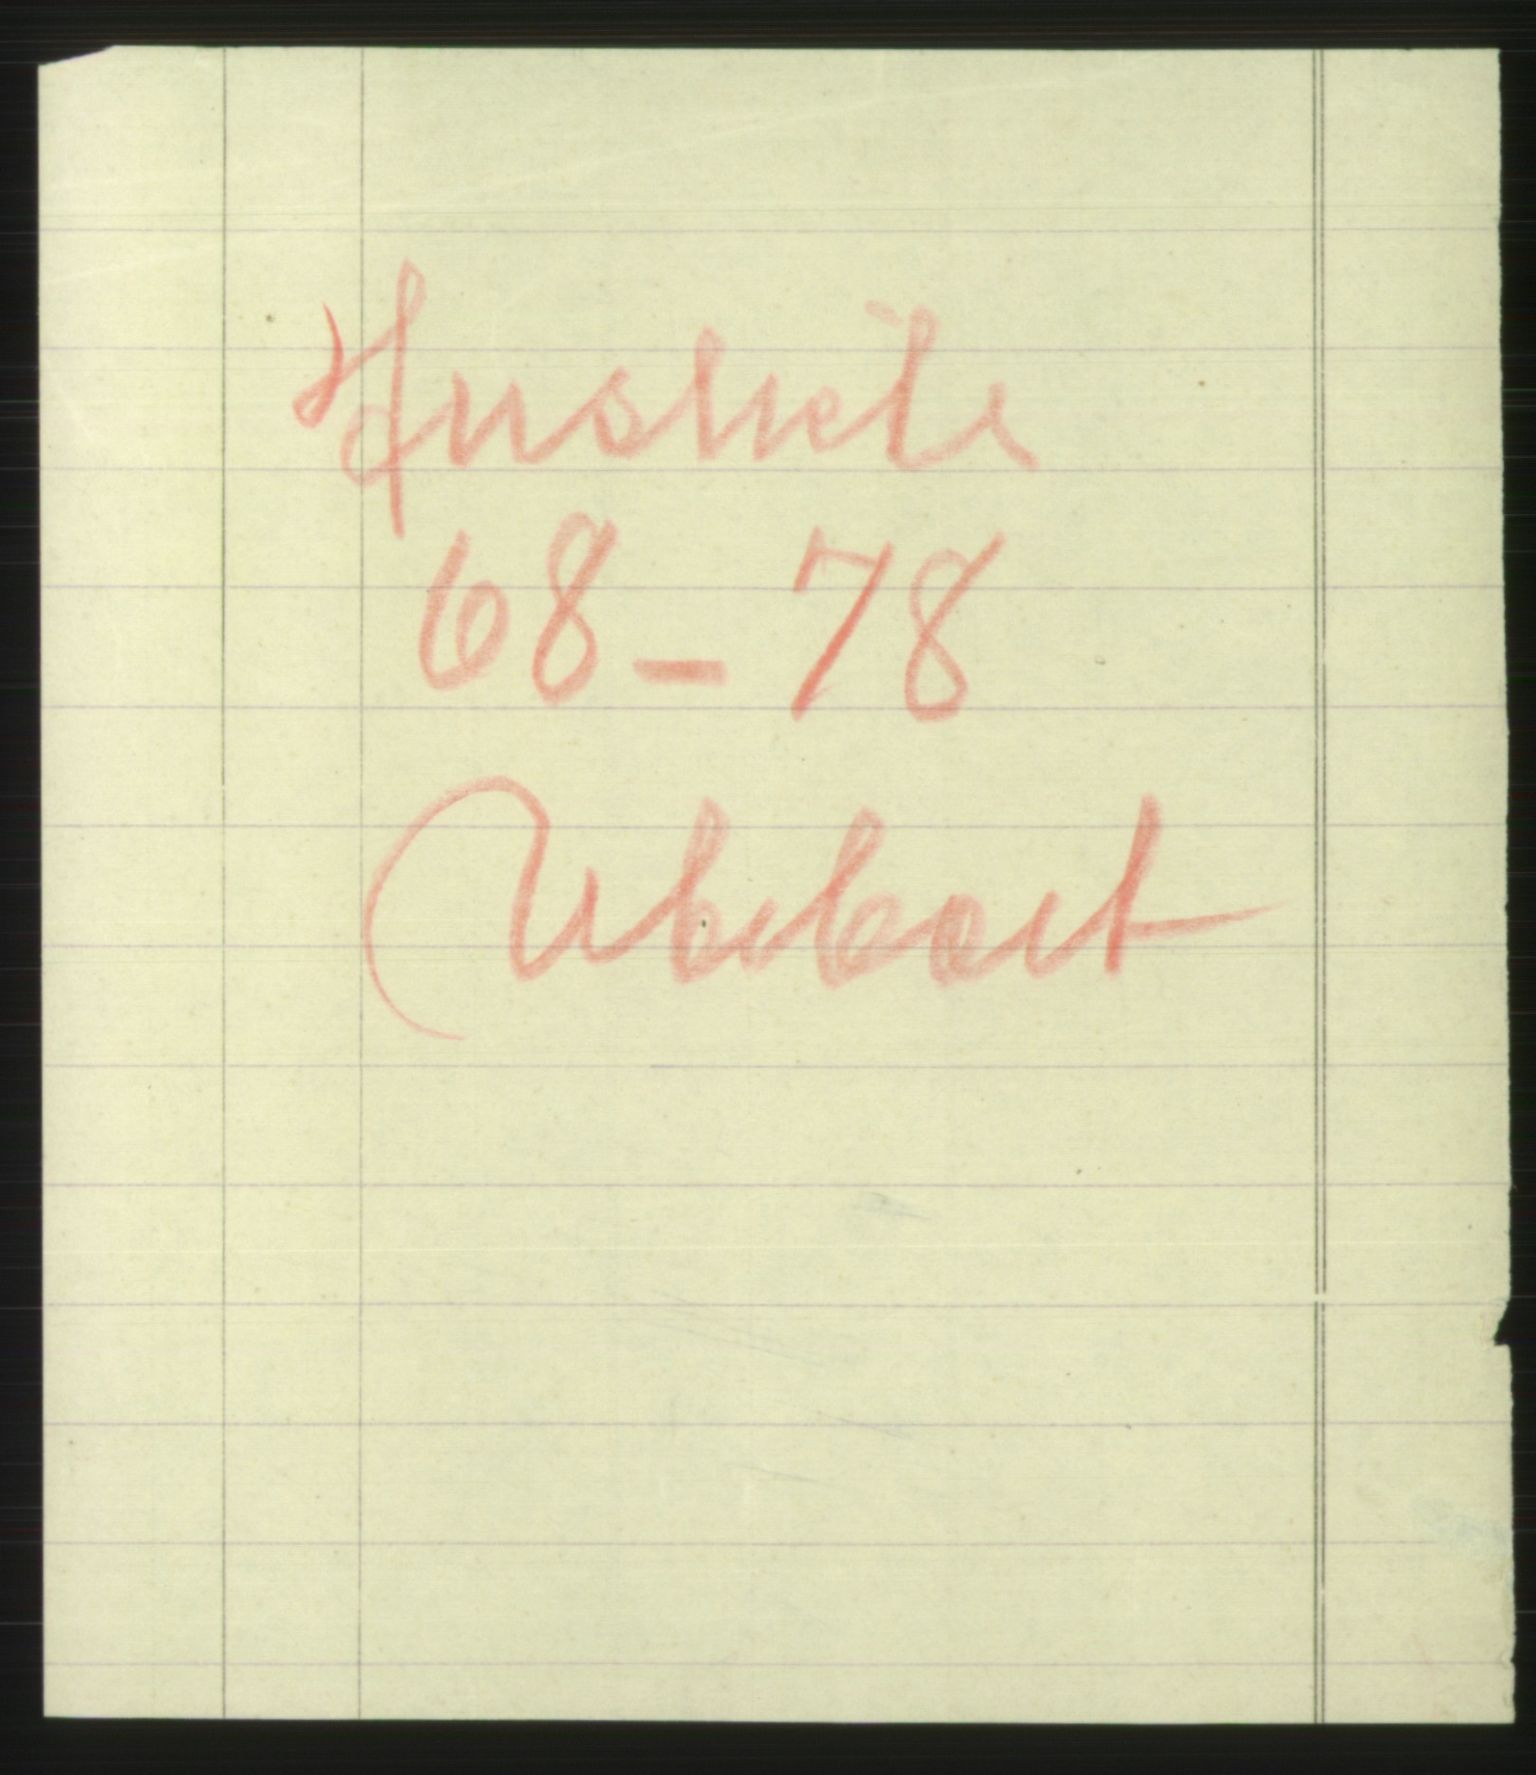 Husliste
68-78
Ubeboet